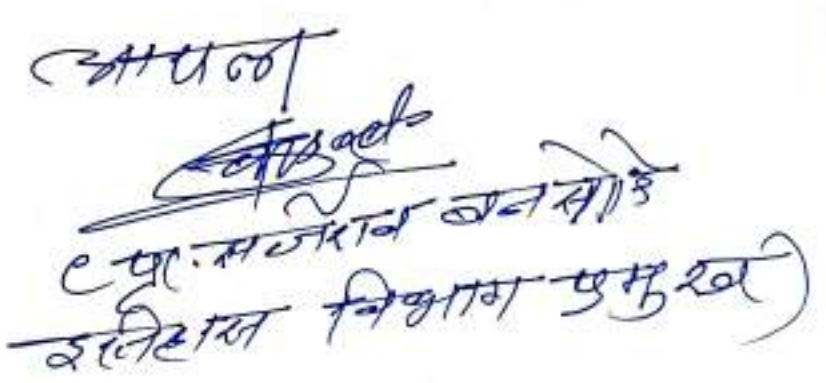 आपला
(प्रा. सर्जेराव बनसोडे
इतिहास विभाग प्रमुख)